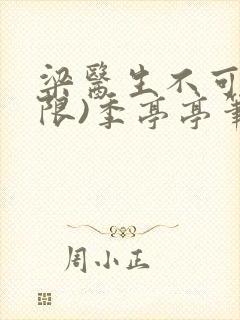 梁醫生不可
限)季亭亭筆
周小正